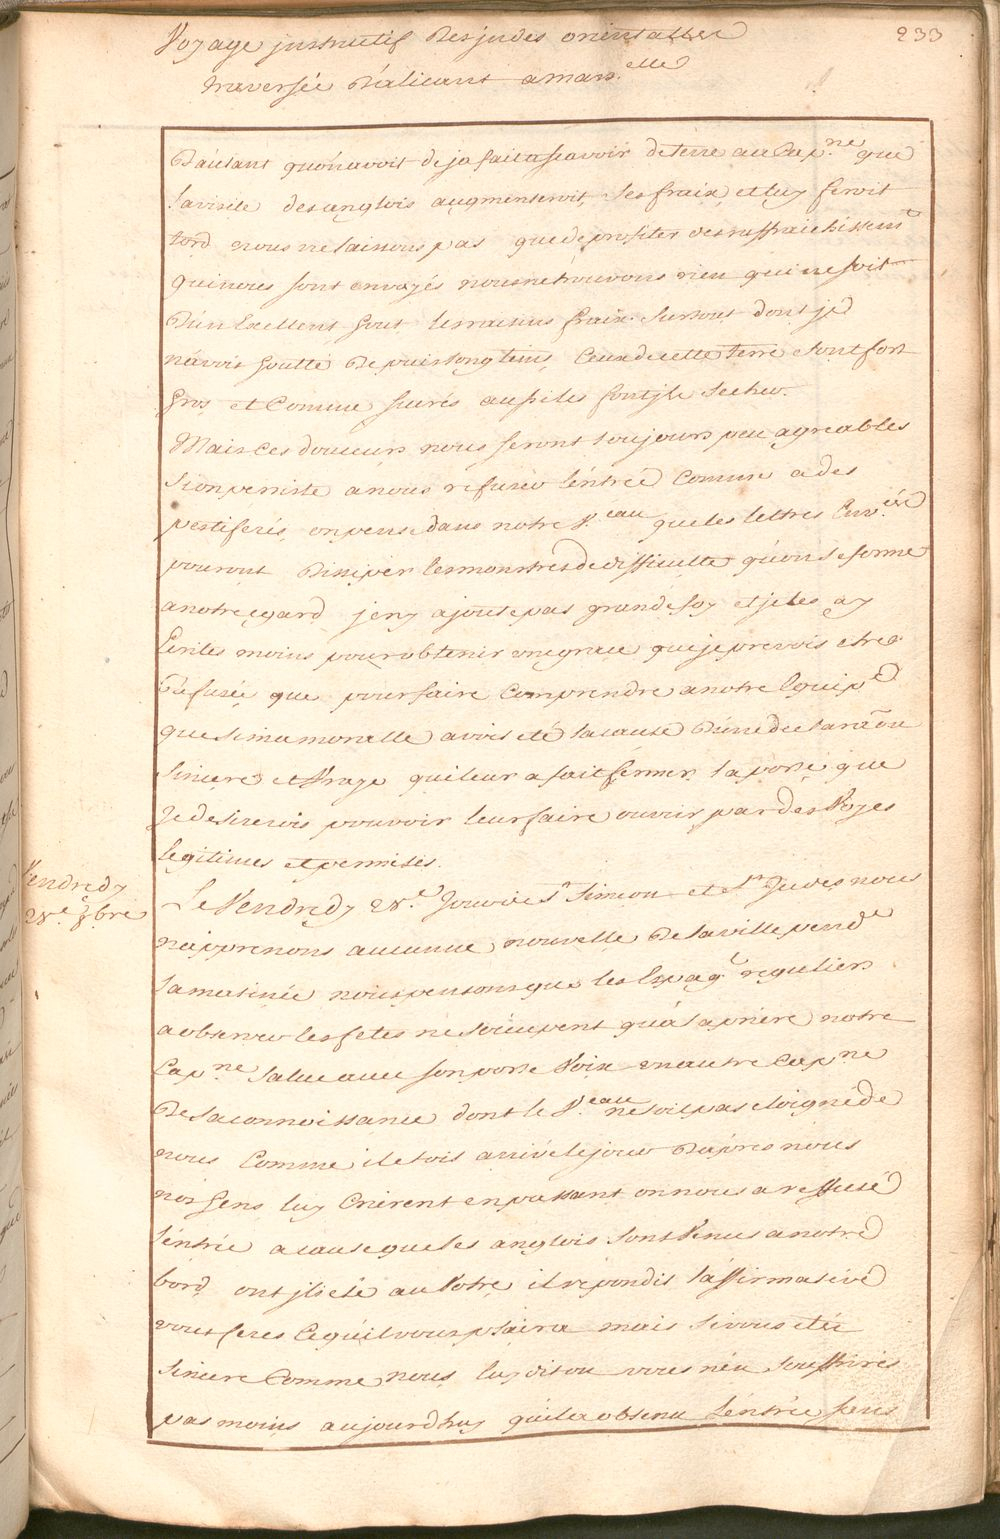 Voyage jnstructif Des jndes orientalles
233
traversée D'alicant a mars.elle
D'autant qu'on avoit deja fait a scavoir de terre au Cap.ne que
la visite des anglois augmenteroit ses fraix et luy feroit
tord nous ne laissons pas que de profiter des raffraichissemt
qui nous sont envoyés nous ne trouvons rien qui ne soit
D'un Excellent gout les raisins fraix sur tout dont je
n'avois goutté Depuis long tems, Ceux de cette terre sont fort
gros et Comme sucrés aussi les font jls secher.
Mais ces douceurs nous seront toujours peu agreables
si on persiste a nous refuser l'entrée Comme a des
pestiferés, on pense dans notre V.eau que les lettres Env.ées
pouront Dissiper les monstres de difficulté qu'on se forme
a notre egard j'en'y ajoute pas grande foy et je les ay
Ecrites moins pour obtenir une grace que je prevois etre
refusée que pour faire Comprendre a notre Equip.e
que si ma moralle avoit eté la cause D'une declaraõn
sincere et Vraye qui leur a fait fermer la porte que
Je desirerois pouvoir leur faire ouvrir par des Voyes
legitimes et permises.
Vendredy
28.e 8.bre
Le Vendredy 28.e Jour de St Simon et St Judes nous
n'apprenons aucune nouvelle De la ville pend.t
la matinée nous pensons que les Espag.ls reguliers
a observer les fetes ne s'occupent qu'à la priere, notre
Cap.ne salue avec son porte Voix un autre Cap.ne
De sa connoissance dont le V.eau ne soit pas eloigné de
nous Comme il etoit arrivé le jour D'apres nous
nos gens luy Crierent en passant on nous a reffusé
l'entrée a cause que les anglois sont Venus a notre
bord, ont jls eté au Votre, il repondit l'affirmative
vous ferés Ce qu'il vous plaira mais si vous etés
sincere Comme nous luy dit on vous n'en souffrirés
pas moins aujourd'huy qu'il a obtenu l'entrée sans